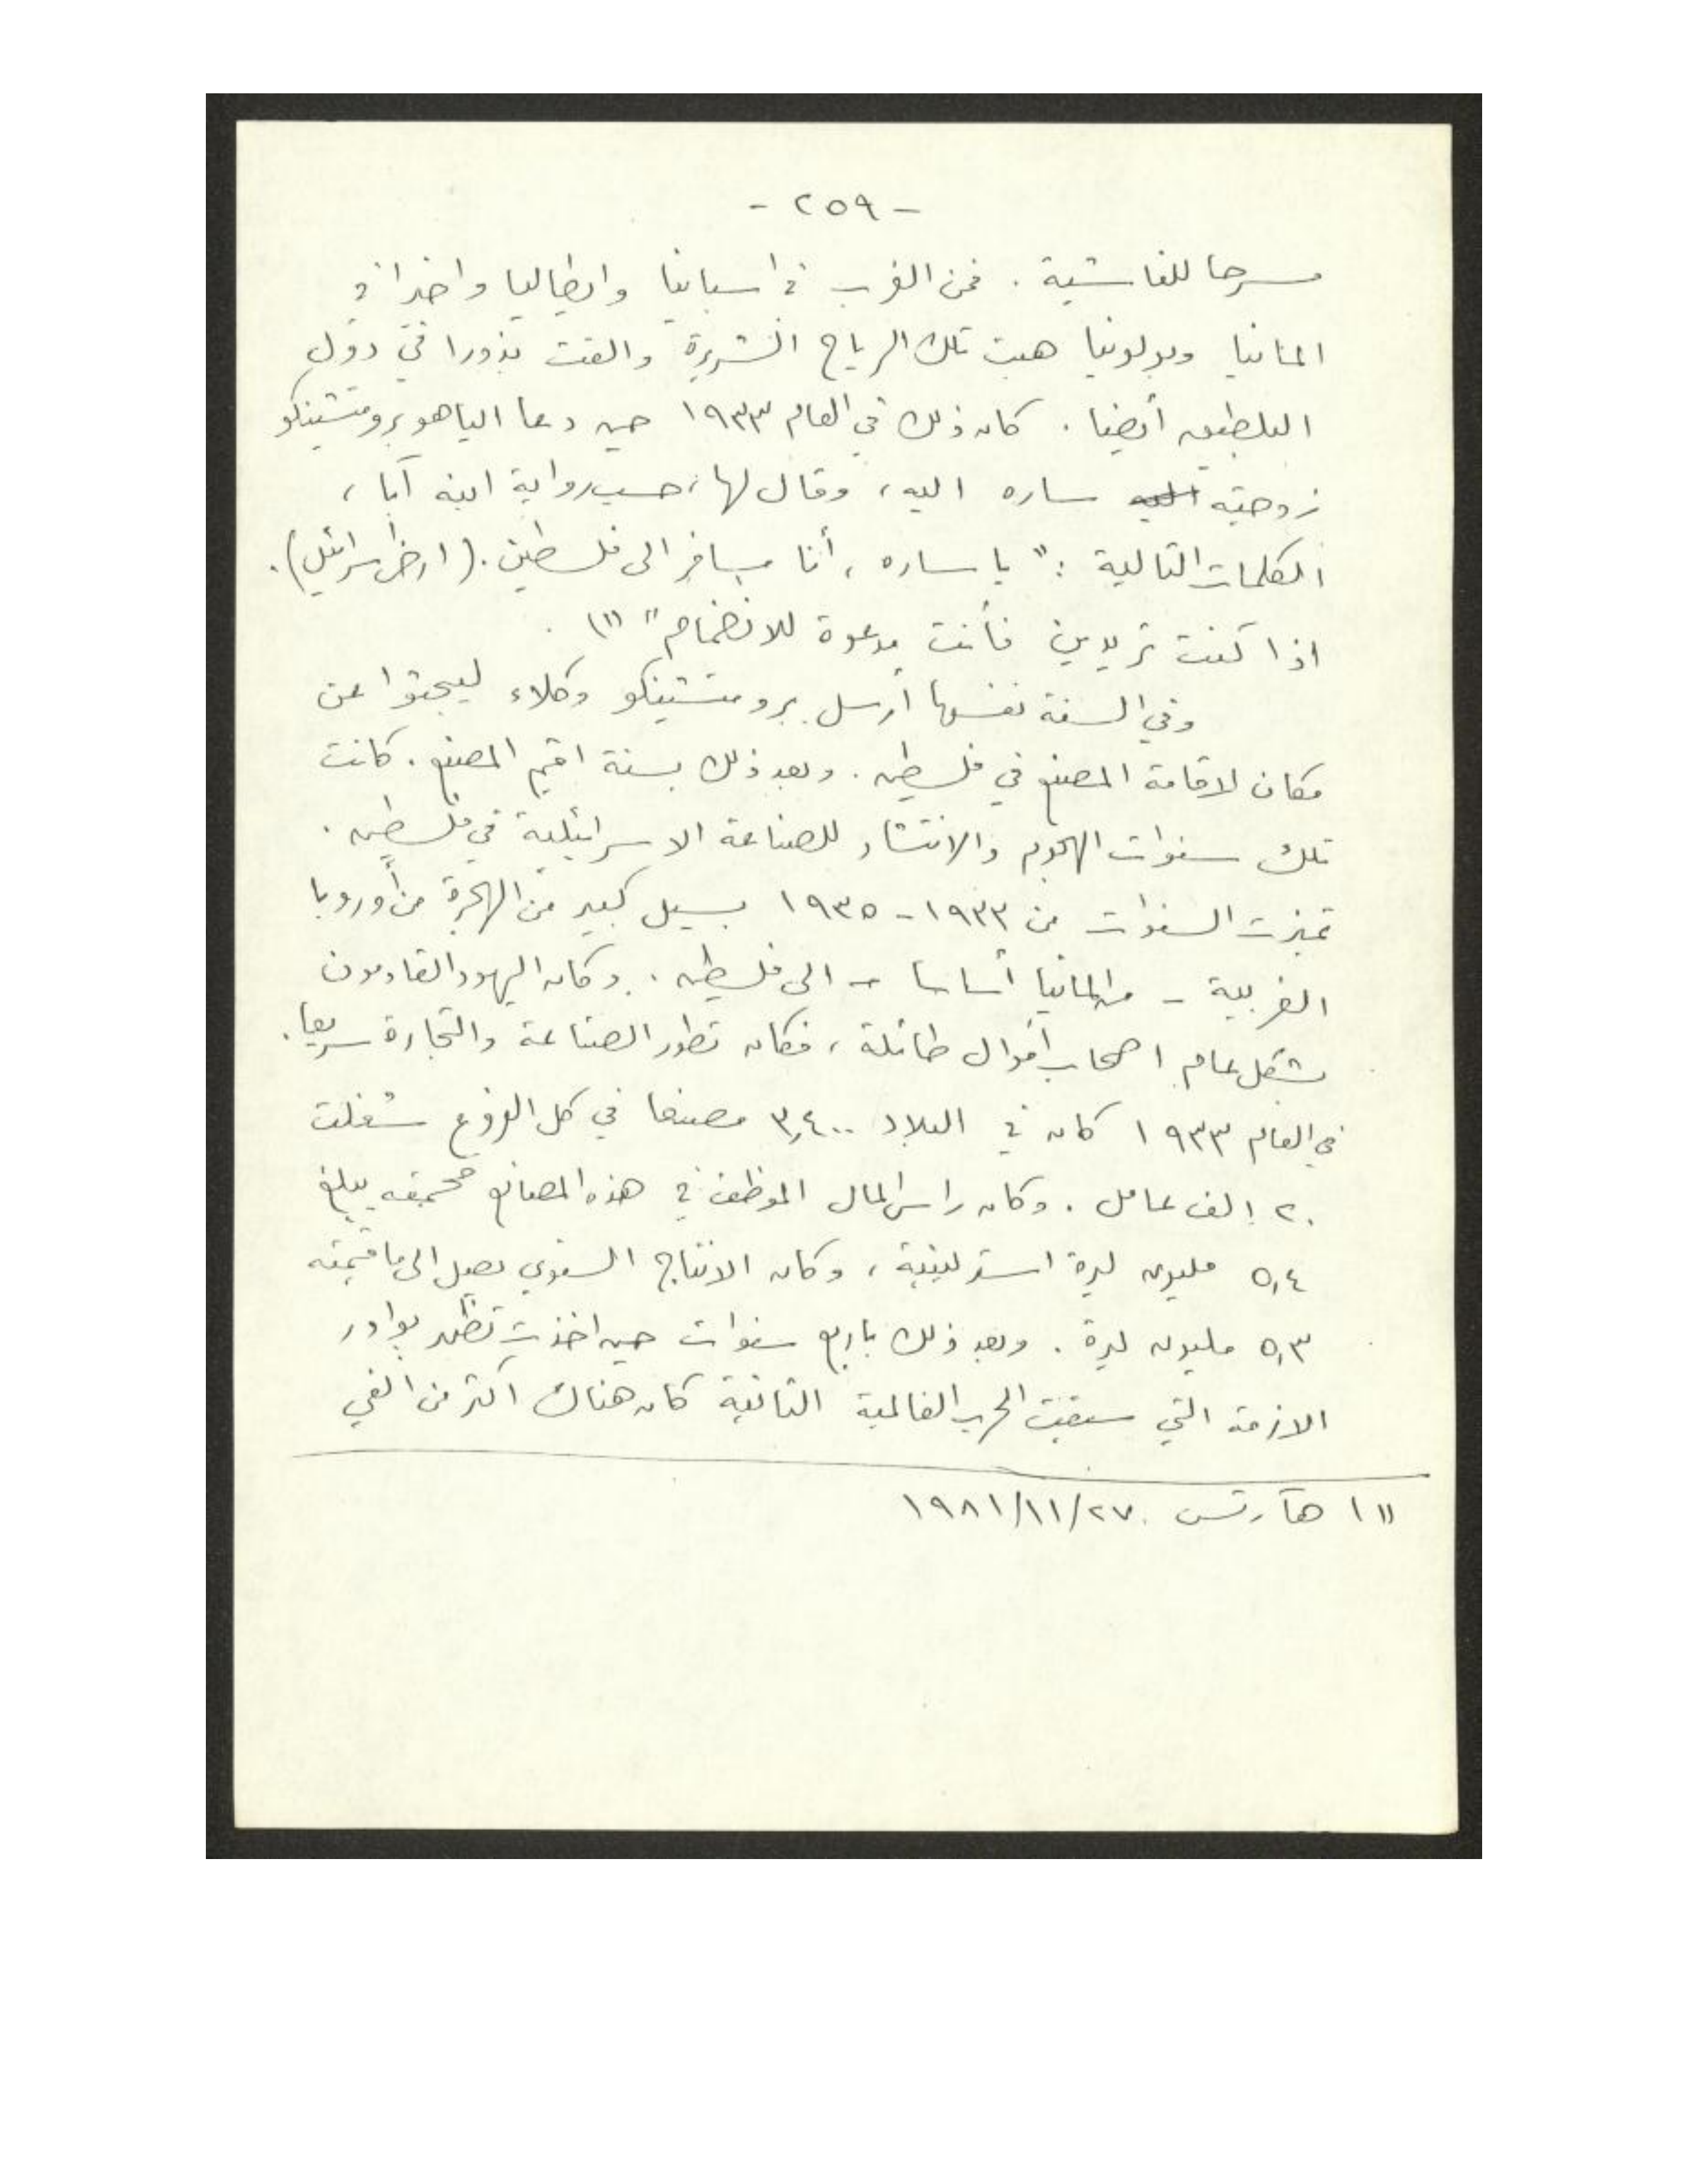 - ٢٥٩ -
مسرحا للفاشية . فمن الغرب في اسبانيا وايطاليا واخيرا في
المانيا وبولونيا هبت تلك الرياح الشريرة والقت بذورا في دول
البلطيق أيضا . كان ذلك في العام ١٩٣٣ حين دعا الياهو برومتشينكو
زوجته ساره اليه ، وقال لها ، حسب رواية ابنه آبا ،
الكلمات التالية : " يا ساره ، أنا مسافر الى فلسطين . ( ارض اسرائيل ) .
اذا كنت تريدين فأنت مدعوة للانضمام " (١) .
وفي السنة نفسها أرسل برومتشينكو وكلاء ليبحثوا عن
مكان لاقامة المصنع في فلسطين . وبعد ذلك بسنة اقيم المصنع . كانت
تلك سنوات الهجوم والانتشار للصناعة الاسرائيلية في فلسطين .
تميزت السنوات من ١٩٣٣ - ١٩٣٥ بسيل كبير من الهجرة من أوروبا
الغربية - من المانيا أساسا - الى فلسطين . وكان اليهود القادمون
بشكل عام اصحاب أموال طائلة ، فكان تطور الصناعة والتجارة سريعا .
في العام ١٩٣٣ كان في البلاد ٣,٤٠٠ مصنعا في كل الفروع شغلت
٢٠ الف عامل . وكان راس المال الموظف في هذه المصانع مجتمعه يبلغ
٥,٤ مليون ليرة استرلينية ، وكان الانتاج السنوي يصل الى ما قيمته
٥,٣ مليون ليرة . وبعد ذلك باربع سنوات حين اخذت تظهر بوادر
الازمة التي سبقت الحرب العالمية الثانية كان هناك اكثر من الفي
(١) هآرتس ١٩٨١/١١/٢٧